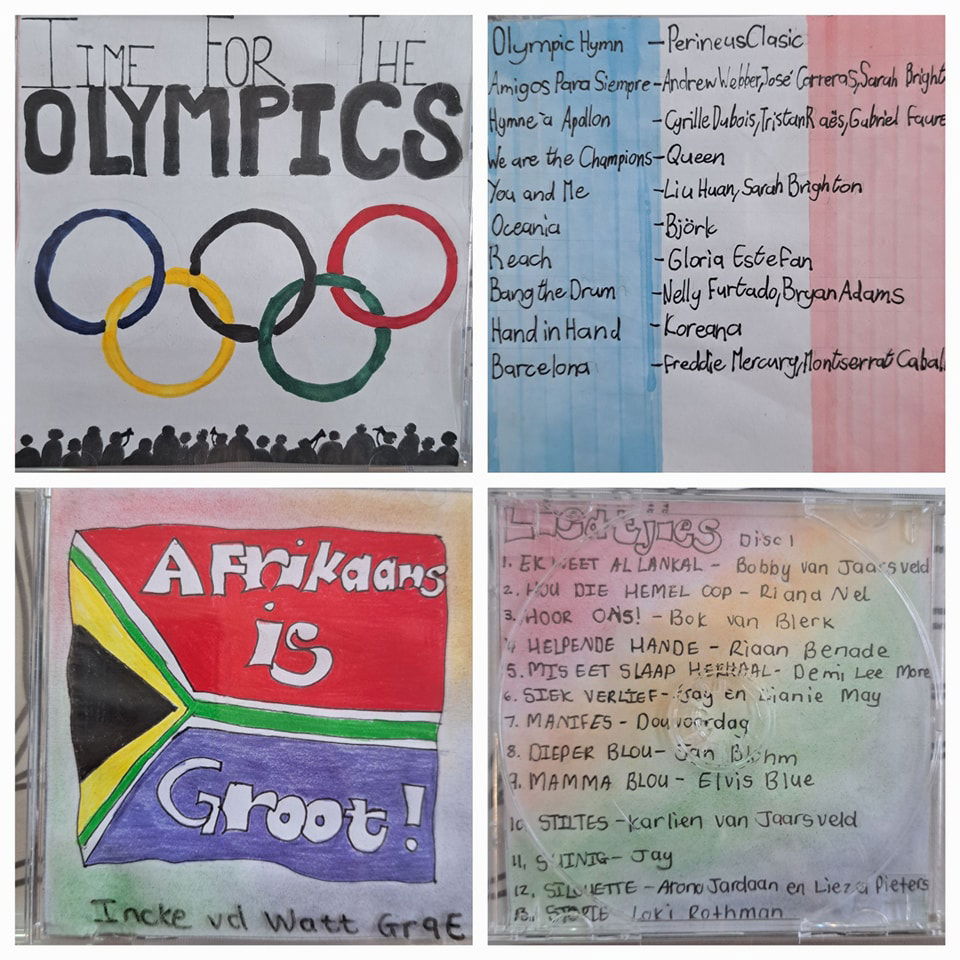 TIME FOR THE
OLYMPICS
Olympic Hymn - PerineusClasic
Amigos Para Siempre - Andrew Webber, José Carreras, Sarah Bright
Hymne à Apollon - Cyrille Dubois, Tristan Raës, Gabriel Faure
We are the Champions - Queen
You and Me - Liu Huan, Sarah Brighton
Oceania - Björk
Reach - Gloria Estefan
Bang the Drum - Nelly Furtado, Bryan Adams
Hand in Hand - Koreana
Barcelona - Freddie Mercury, Montserrat Cabal
Afrikaans
is
Groot!
Incke vd Watt Gr9E
Liedtjies Disc 1
1. EK WEET AL LANKAL - Bobby van Jaarsveld
2. HOU DIE HEMEL OOP - Riana Nel
3. HOOR ONS! - Bok van Blerk
4 HELPENDE HANDE - Riaan Benade
5. MIS EET SLAAP HERHAAL - Demi Lee More
6. SIEK VERLIEF - Jay en Lianie May
7. MANIFES - Douvoordag
8. DIEPER BLOU - Jan Blohm
9. MAMMA BLOU - Elvis Blue
10 STILTES - Karlien van Jaarsveld
11, SUINIG - Jay
12. SILOUETTE - Arono Jardaan en Lieza Pieters
13. STORIE Loki Rothman